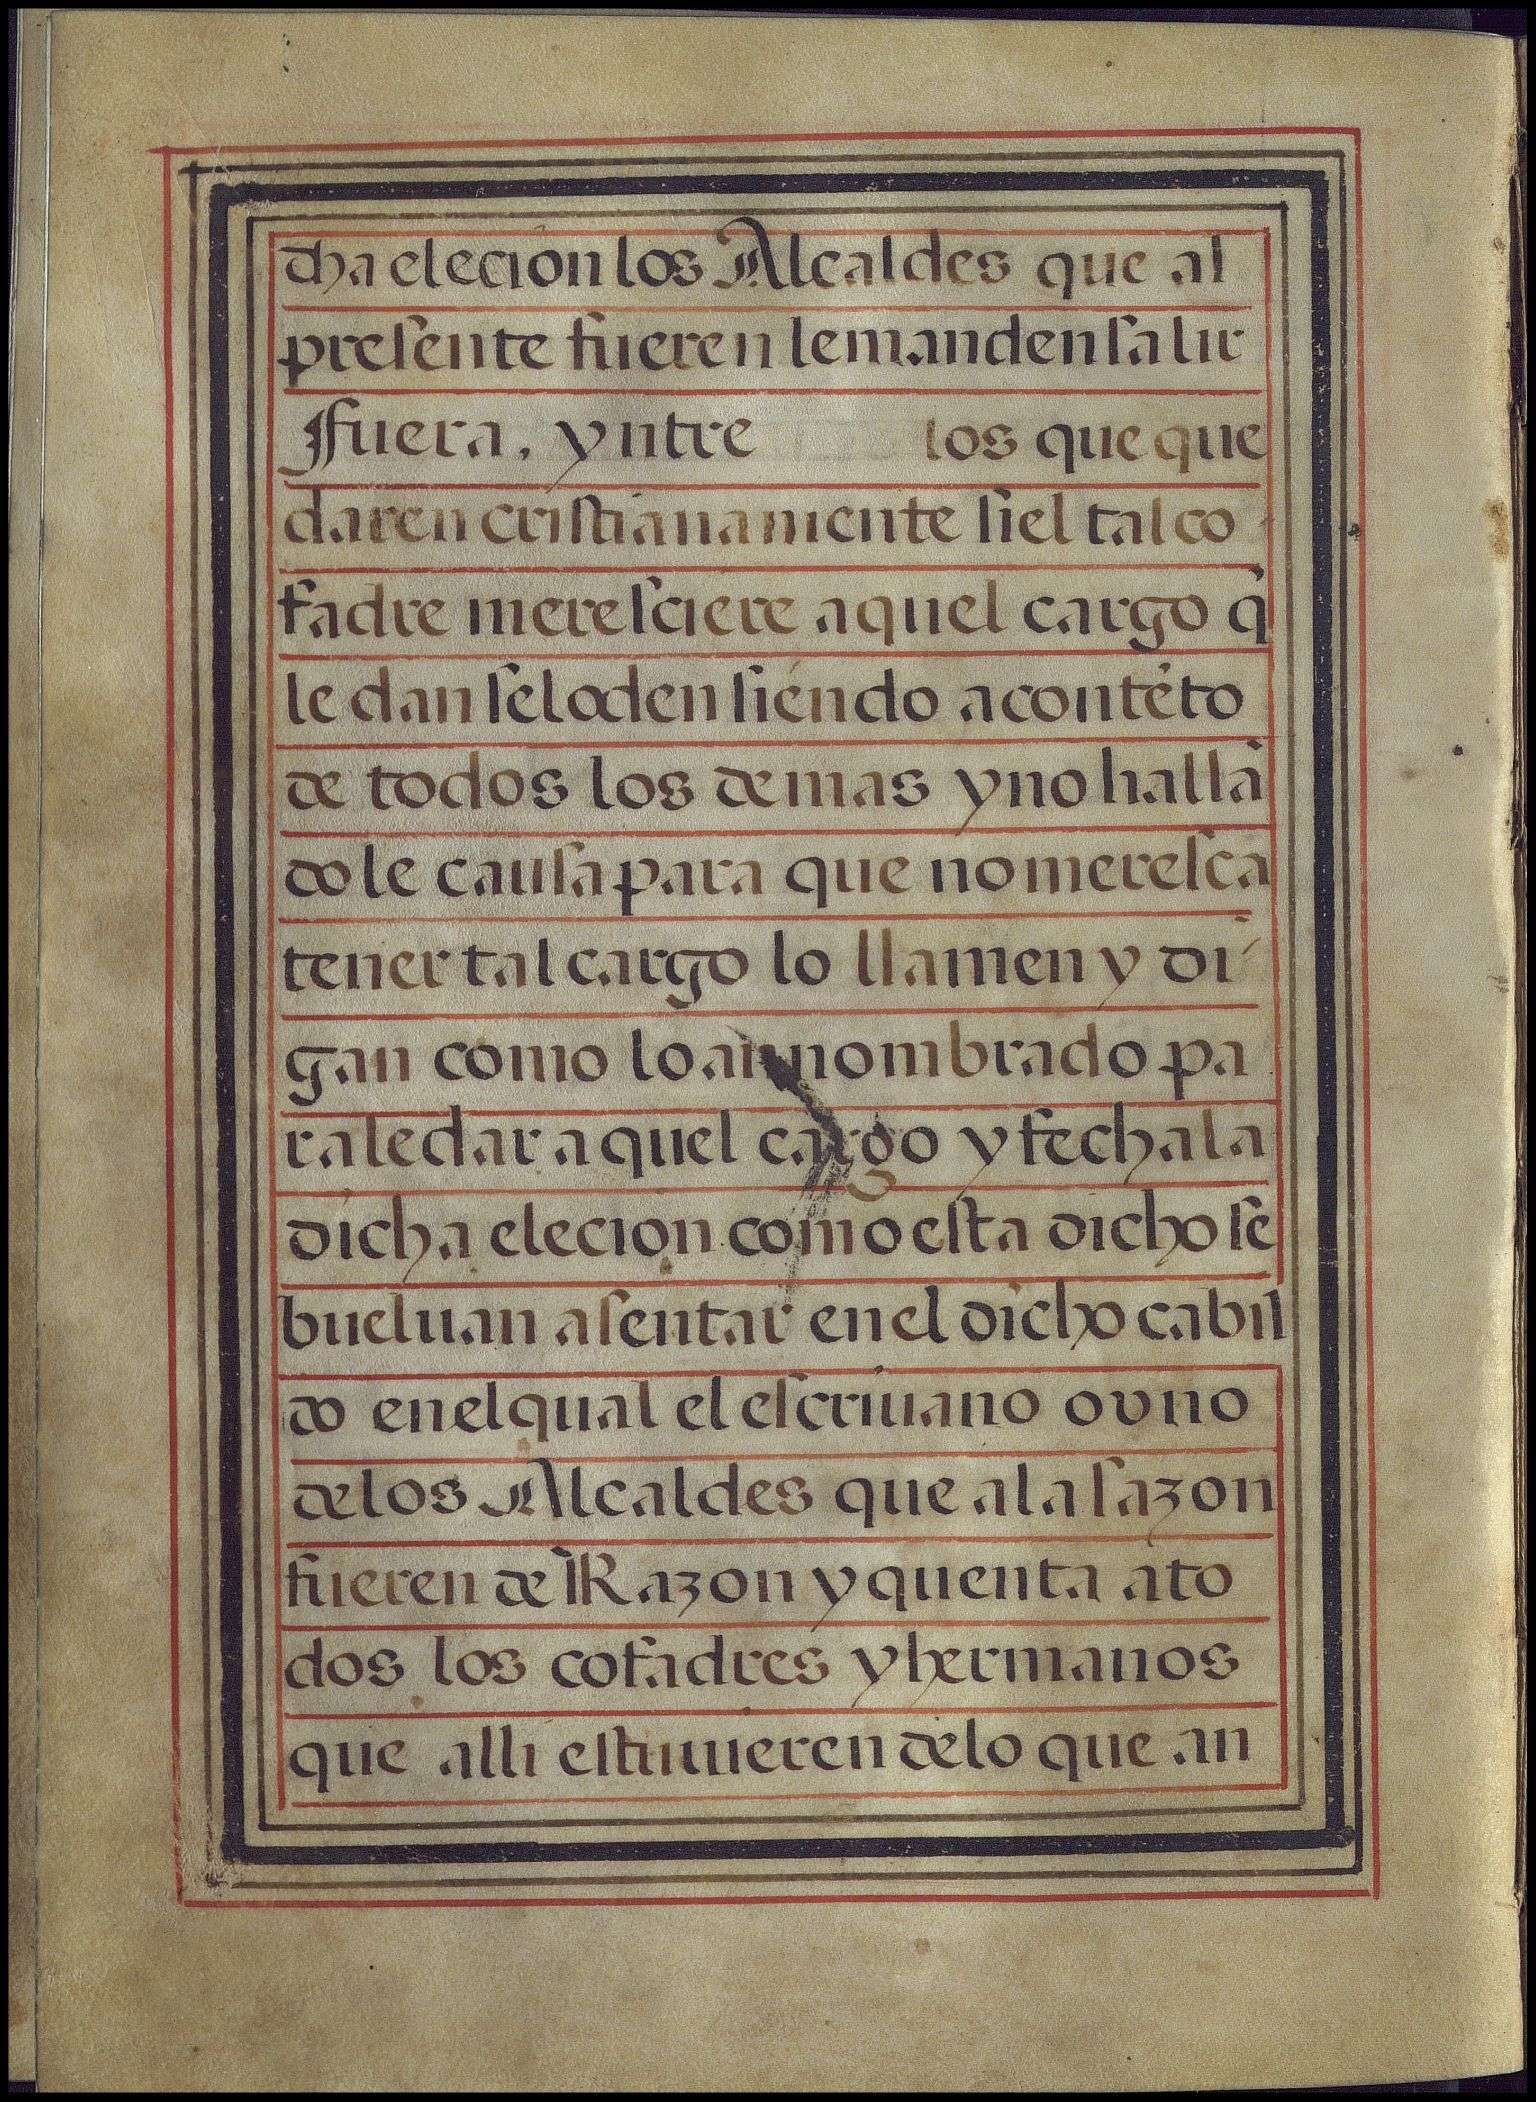 dha elecion los Alcaldes que al
presente fueren lemanden salir
ffuera, yntre los que que
daren cristianamente siel tal co
fadre meresciere aquel cargo q̃
le dan selo den siendo a contẽto
de todos los demas y no hallã
dole causa para que no meresca
tener tal cargo lo llamen y di
gan como lo an nombrado pa
rale dar aquel cargo y fecha la
dicha elecion como esta dicho se
bueluan asentar en el dicho cabil
do en el qual el escriuano o vno
delos Alcaldes que ala sazon
fueren de Razon y quenta a to
dos los cofadres y hermanos
que alli estuuieren delo que an